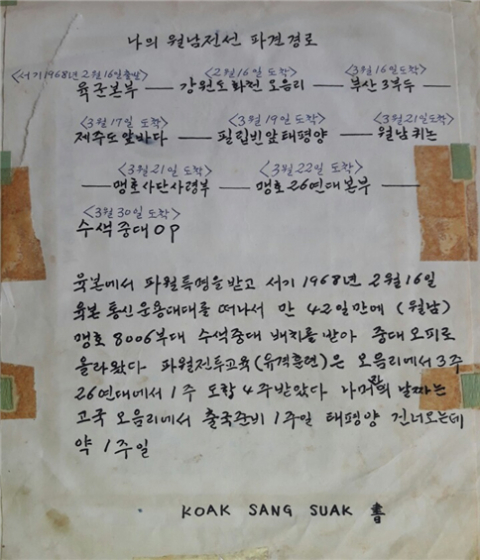 나의 월남전선 파견경로
<서기1968년 2월16일출발> <2월16일 도착> <3월16일도착>
육군본부 — 강원도화천 오음리 — 부산 3부두 —
<3월17일 도착> <3월19일 도착> <3월21일도착>
— 제주도앞바다 — 필립빈앞태평양 — 월남퀴논
<3월21일 도착> <3월22일 도착>
— 맹호사단사령부 — 맹호26연대본부 —
<3월30일 도착>
수색중대OP
육본에서 파월특명을받고 서기1968년 2월16일
육본통신운용대대를 떠나서 만 42일만에 (월남)
맹호 8006부대 수색중대 배치를받아 중대오피로
올라왔다 파월전투교육(유격훈련)은 오음리에서3주
26연대에서 1주 도합 4주받았다 나머지 날짜는
고국 오음리에서 출국준비 1주일 태평양 건너오는데
약 1주일
KOAK SANG SUAK 書